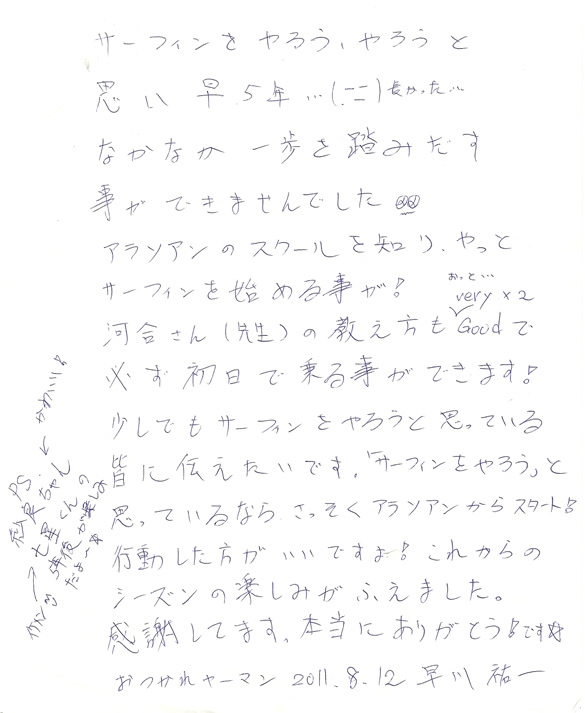 サーフィンを やろう、やろう と
思い 早 5年…(ﾆﾆ) 長かった…
なかなか 一歩を 踏みだす
事が できませんでした
アラソアンの スクールを 知り、やっと
サーフィンを 始める事が!
おっと…
very × 2
河合さん (先生) の 教え方も Good で
必ず 初日で 乗る事が できます!
少しでも サーフィンを やろうと 思っている
皆に 伝えたいです。「サーフィンを やろう」と
思っているなら、さっそく アラソアンから スタート!
行動した方が いいですよ! これからの
シーズンの 楽しみが ふえました。
感謝してます。本当に ありがとう!です☆
おつかれヤーマン 2011. 8. 12 早川 祐一
PS. ← かわいい!
ちゃん
七星くんの
が楽しみ
だよ〜☆